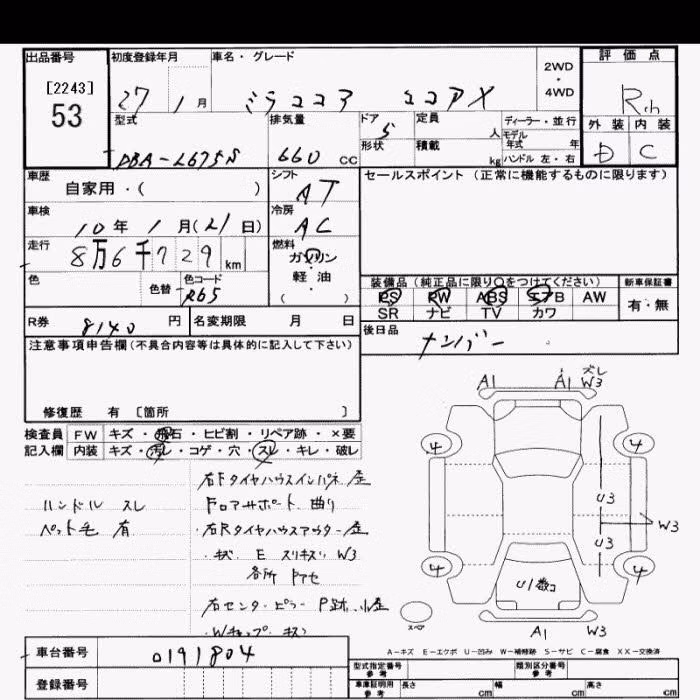 出品番号
[2243]
53
初度登録年月
27 1月
車名・グレード
ミラココア ココアX
2WD
・
4WD
評価点
R
外装 内装
D C
型式
DBA-L675S
排気量
660 CC
ドア
5
形状
定員
人
積載
kg
ディーラー・並行
モデル
年式 年
ハンドル 左・右
車歴
自家用・( )
シフト
AT
セールスポイント (正常に機能するものに限ります)
車検
10年 1月(21日)
冷房
AC
走行
8万6千729km
燃料
ガソリン
・
軽油
( )
色
色替
色コード
R65
装備品(純正品に限り○をつけてください)
PS PW ABS エアB AW
SR ナビ TV カワ
新車保証書
有・無
R券
8140円
名変期限 月 日
後日品
ナンバー
注意事項申告欄(不具合内容等は具体的に記入して下さい)
修復歴 有 [箇所 ]
検査員
記入欄
FW キズ・飛石・ヒビ割・リペア跡・×要
内装 キズ・汚レ・コゲ・穴・スレ・キレ・破レ
ハンドル スレ
ペット毛 有
右Fタイヤハウスインパネ 歪
Fロアサポート 曲り
・右Rタイヤハウスアウター歪
・キズ E スリキズリ W3
各所 Pアセ
右センターピラー P跡、小歪
・Wチップ・キズ
A1 A1 ズレ
W3
4 4
U3
W3
U3
4 4
U1数コ
スペア
A1 W3
A-キズ E-エクボ U-凹み W-補修跡 S-サビ C-腐食 XX-交換済
車台番号
0191804
登録番号
型式指定番号
参考
類別区分番号
参考
車庫証明用
参考
長さ cm
幅 cm
高さ cm